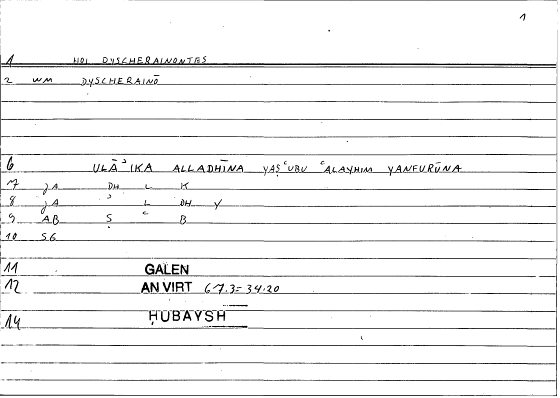 1
1 HOI DYSCHERAINONTES
2 WM DYSCHERAINŌ
6 ULĀʾIKA ALLADHĪNA YAṢʿUBU ʿALAYHIM YANFURŪNA
7 JA DH L K
8 JA ʾ L DH Y
9 AB Ṣ ʿ B
10 SG
11 GALEN
12 AN VIRT 67.3=34.20
14 ḤUBAYSH